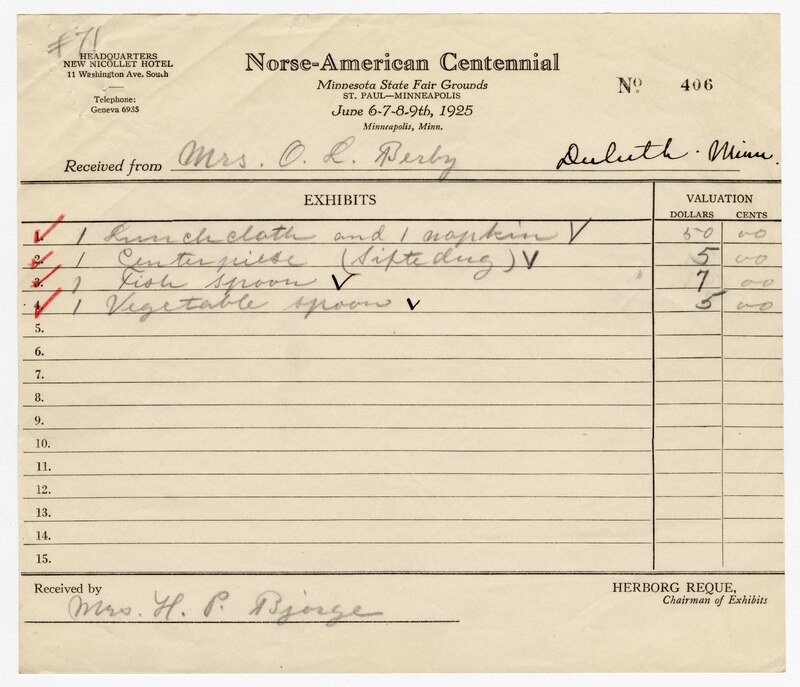 #71
HEADQUARTERS
NEW NICOLLET HOTEL
11 Washington Ave. South
Telephone:
Geneva 6935
Norse-American Centennial
Minnesota State Fair Grounds
ST. PAUL—MINNEAPOLIS
June 6-7-8-9th, 1925
Minneapolis, Minn.
No 406
Received from Mrs. O. L. Berby Duluth. Minn.
EXHIBITS VALUATION
DOLLARS CENTS
1. 1 Lunchcloth and 1 napkin 50 00
2. 1 Centerpiese (Siftedug) 5 00
3. 1 Fish spoon 7 00
4. 1 Vegetable spoon 5 00
5.
6.
7.
8.
9.
10.
11.
12.
13.
14.
15.
Received by Mrs. H. P. Bjorge
HERBORG REQUE,
Chairman of Exhibits